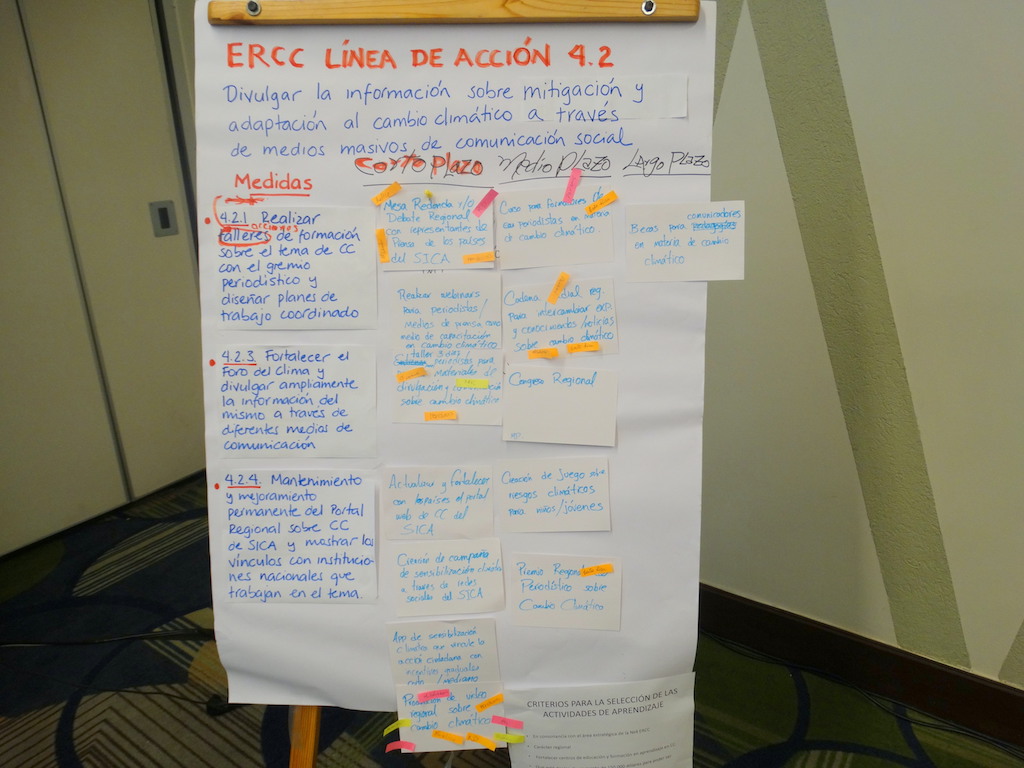 ERCC LÍNEA DE ACCIÓN 4.2
Divulgar la información sobre mitigación y
adaptación al cambio climático a través
de medios masivos de comunicación social
Corto Plazo Medio Plazo Largo Plazo
Medidas
4.2.1. Realizar
talleres de formación
sobre el tema de CC
con el gremio
periodístico y
diseñar planes de
trabajo coordinado
4.2.3. Fortalecer el
Foro del Clima y
divulgar ampliamente
la información del
mismo a través de
diferentes medios de
comunicación
4.2.4. Mantenimiento
y mejoramiento
permanente del Portal
Regional sobre CC
de SICA y mostrar los
vínculos con institucio-
nes nacionales que
trabajan en el tema.
Mesa Redonda y/o
Debate Regional
con representantes de
Prensa de los países
del SICA
Realizar webinars
para periodistas/
Medios de prensa como
medio de capacitación
en cambio climático
taller 3 días
periodistas para
materiales de
divulgación y
sobre cambio climático
Actualizar y fortalecer
con los países el portal
web de CC del
SICA
Creación de campaña
de sensibilización climática
a través de redes
sociales del SICA
App de sensibilización
climática que vincule la
acción ciudadana con
Producción de video
regional sobre
cambio climático
Curso para formadores de
con periodistas en materia
de cambio climático
Cadena reg.
para intercambiar exp.
y conocimientos/noticias
sobre cambio climático
Congreso Regional
MP.
Creación de Juego sobre
riesgos climáticos
para niños/jóvenes
Premio Regional
Periodístico sobre
Cambio Climático
comunicadores
Becas para
en materia de cambio
climático
CRITERIOS PARA LA SELECCIÓN DE LAS
ACTIVIDADES DE APRENDIZAJE